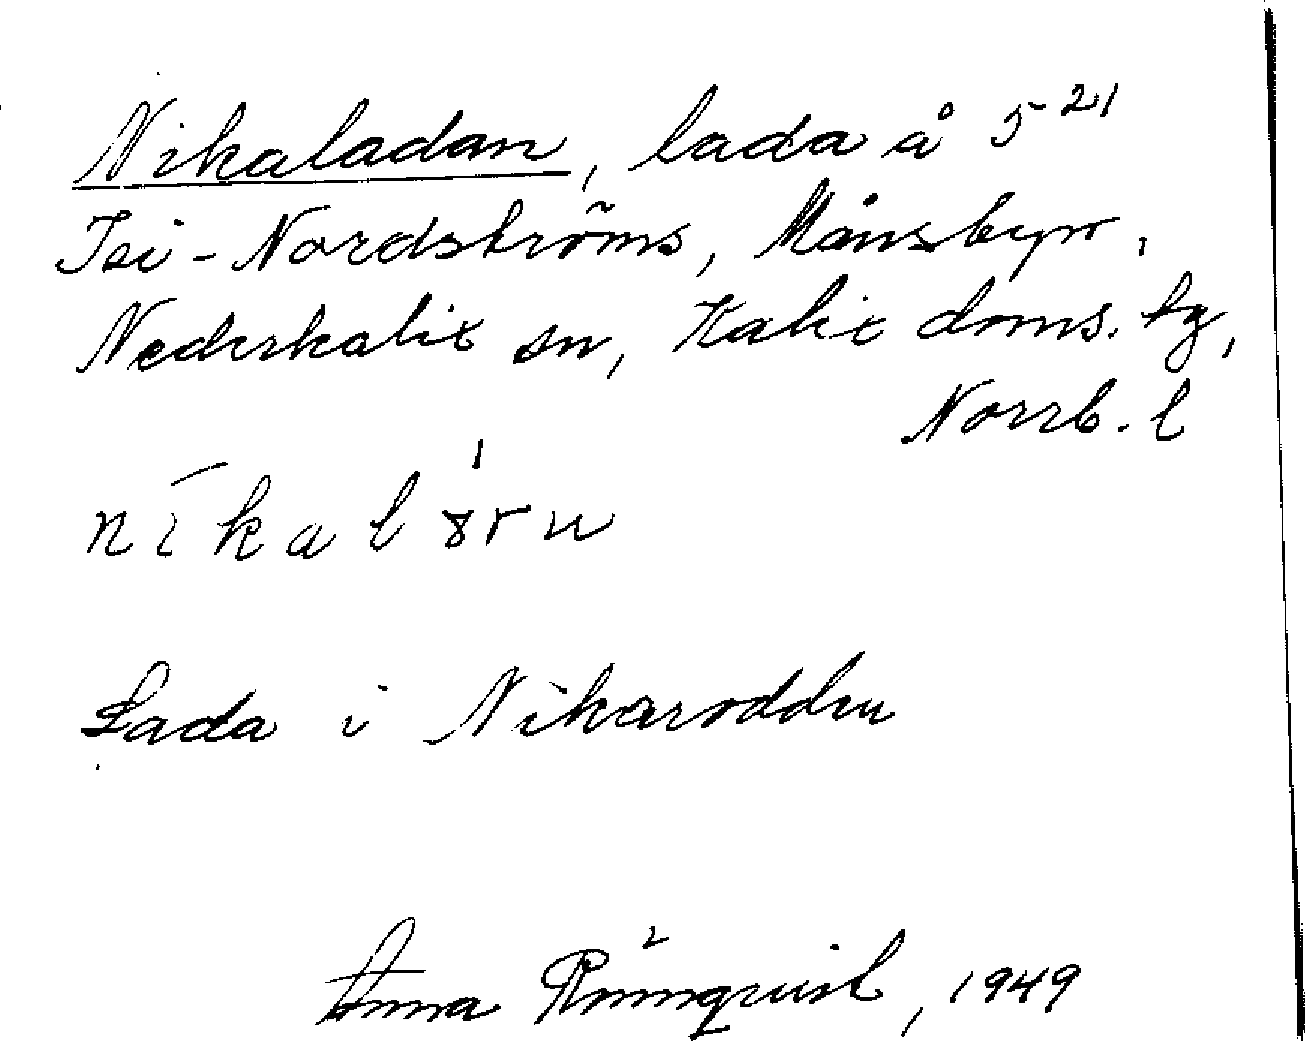 Nikaladan, lada å 5²¹
Isi-Nordströms, Månsbyn,
Nederkalix sn, Kalix doms. tg,
Norrb. l
Lada i Nikarodden
Anna Rönnqvist, 1949